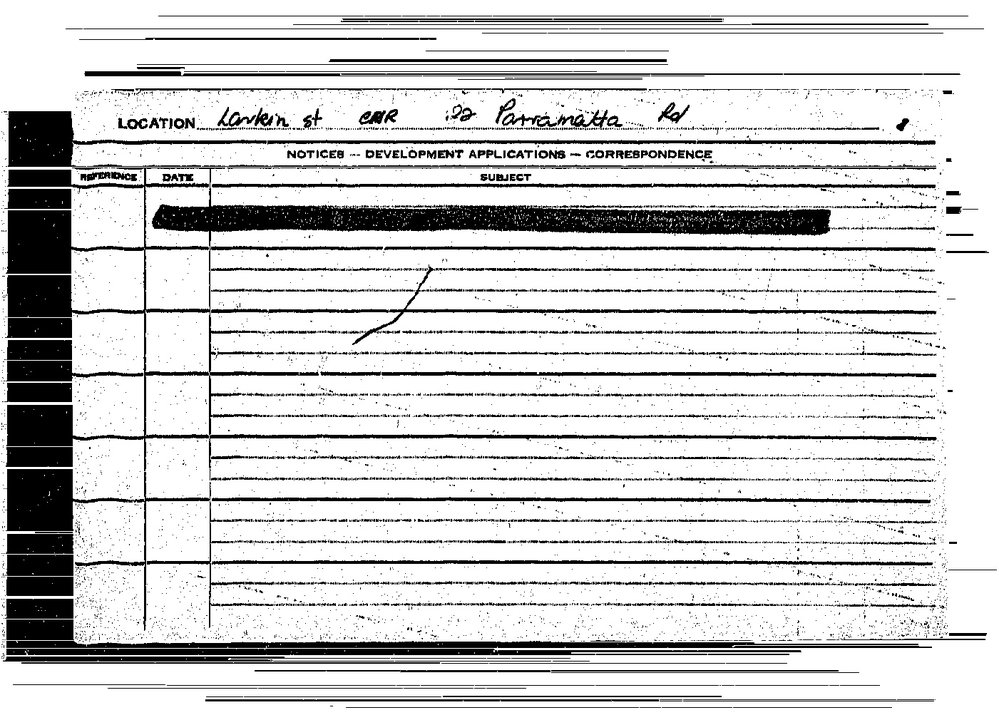 LOCATION Larkin st CNR 122 Parramatta Rd
NOTICES — DEVELOPMENT APPLICATIONS — CORRESPONDENCE
REFERENCE DATE SUBJECT